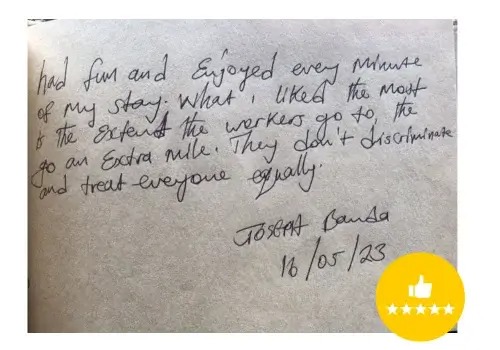 had fun and Enjoyed every minute
of my stay. What i liked the most
is the Extend the workers go to, the
go an Extra mile. They don't discriminate
and treat everyone equally.
Joseph Banda
16/05/23